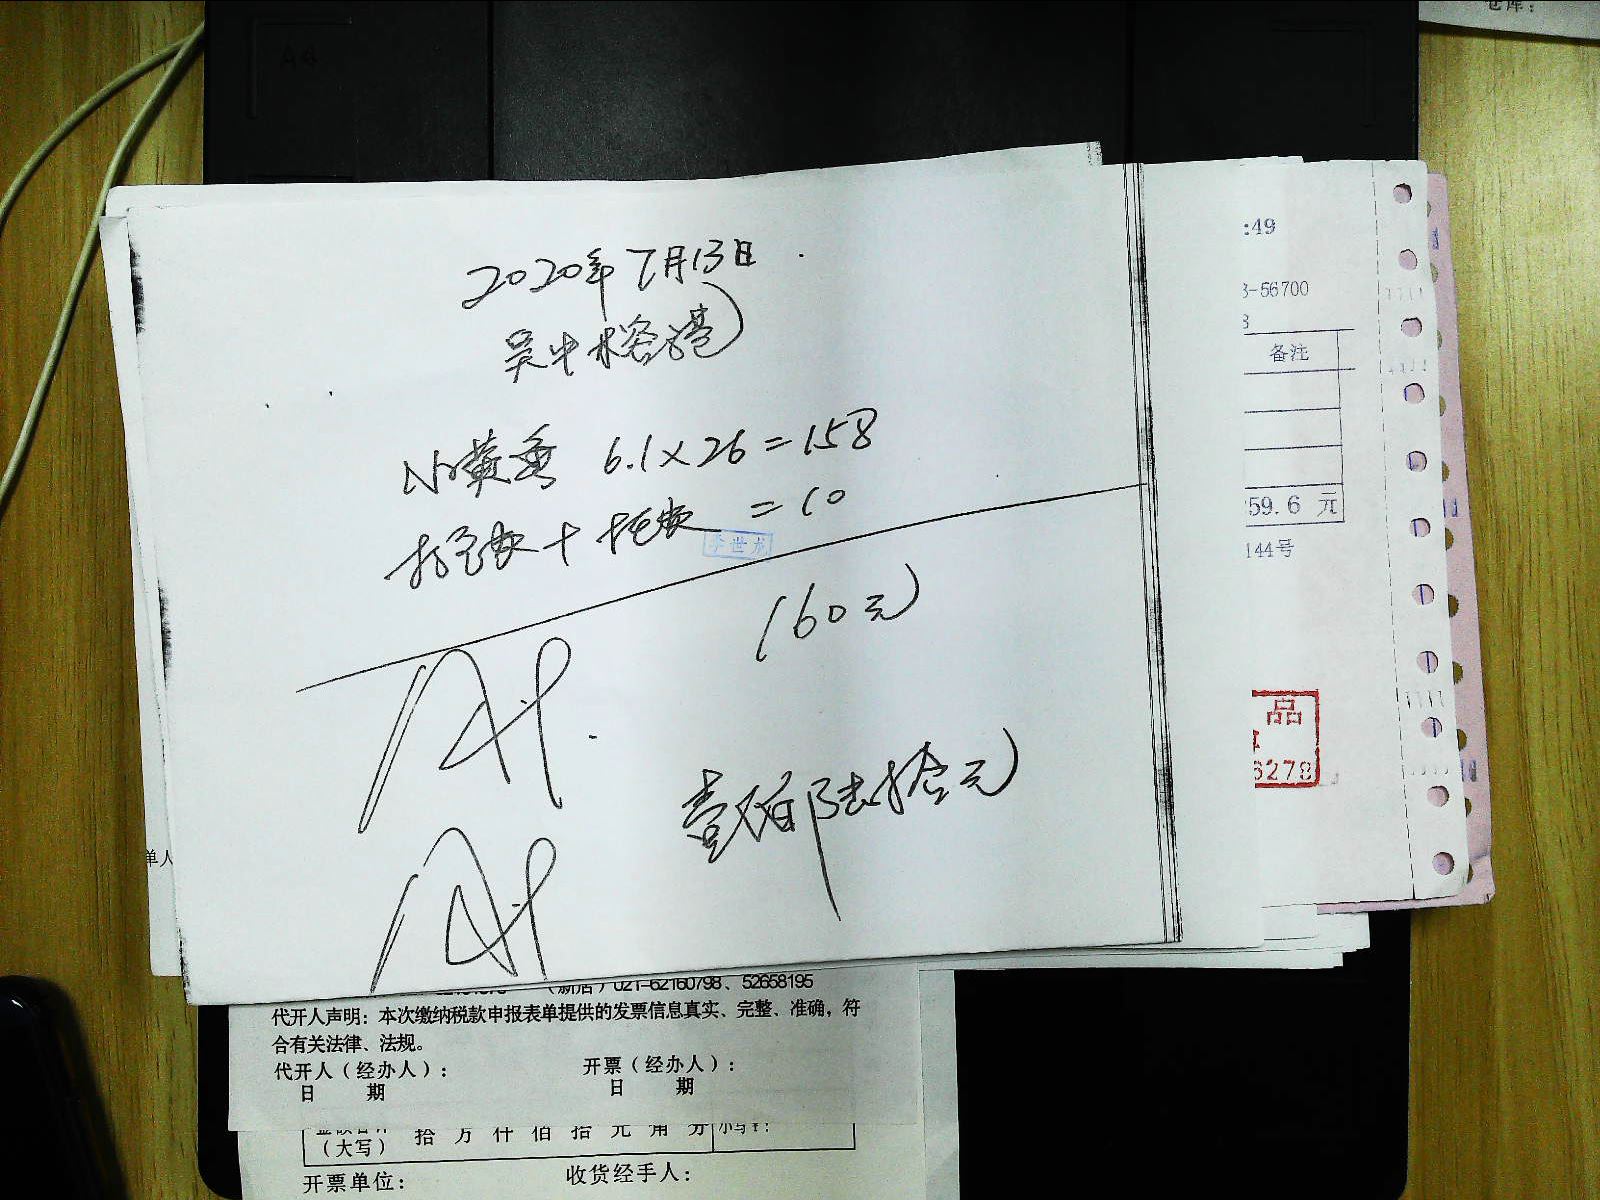 仓库：
A4
2020年7月13日
:49
3-56700
8
备注
小黄鱼 6.1×26=158
=10
李世龙
59.6 元
144号
160元
品
6278
壹佰陆拾元
单人
（新店）021-62160798、52658195
代开人声明：本次缴纳税款申报表单提供的发票信息真实、完整、准确，符
合有关法律、法规。
代开人（经办人）： 开票（经办人）：
日 期 日 期
（大写） 拾 万 仟 佰 拾 元 角 分 小写￥：
开票单位： 收货经手人：